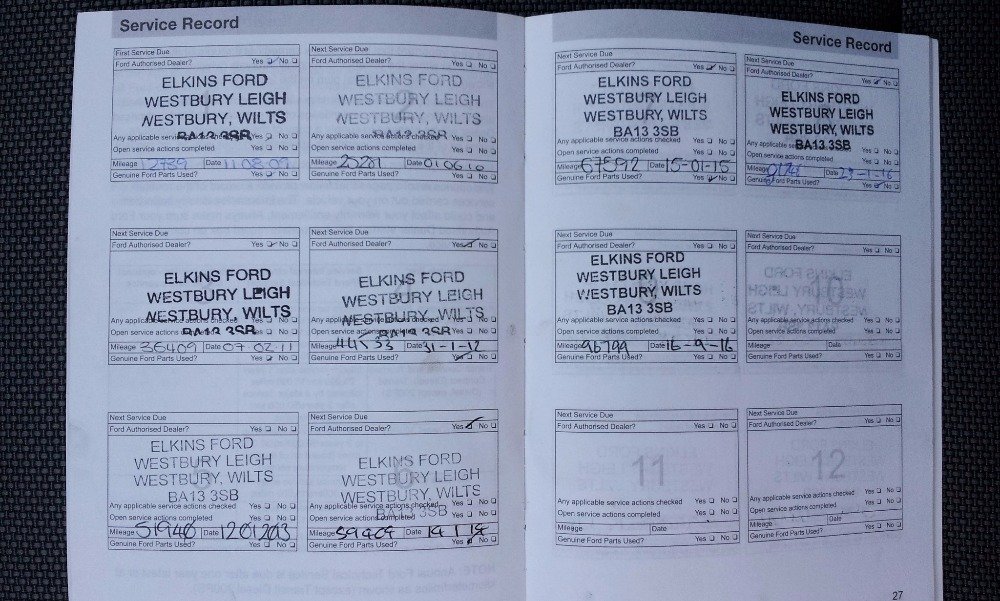 Service Record
First Service Due
Ford Authorised Dealer? Yes No
ELKINS FORD
WESTBURY LEIGH
WESTBURY, WILTS
BA13 3SB
Any applicable service actions checked Yes No
Open service actions completed Yes No
Mileage 12739 Date 11 08 09
Genuine Ford Parts Used? Yes No
Next Service Due
Ford Authorised Dealer? Yes No
ELKINS FORD
WESTBURY LEIGH
WESTBURY, WILTS
BA13 3SB
Any applicable service actions checked Yes No
Open service actions completed Yes No
Mileage 25201 Date 01 06 10
Genuine Ford Parts Used? Yes No
Next Service Due
Ford Authorised Dealer? Yes No
ELKINS FORD
WESTBURY LEIGH
WESTBURY, WILTS
BA13 3SB
Any applicable service actions checked Yes No
Open service actions completed Yes No
Mileage 36409 Date 07 02 11
Genuine Ford Parts Used? Yes No
Next Service Due
Ford Authorised Dealer? Yes No
ELKINS FORD
WESTBURY LEIGH
WESTBURY, WILTS
BA13 3SB
Any applicable service actions checked Yes No
Open service actions completed Yes No
Mileage 44533 Date 31-1-12
Genuine Ford Parts Used? Yes No
Next Service Due
Ford Authorised Dealer? Yes No
ELKINS FORD
WESTBURY LEIGH
WESTBURY, WILTS
BA13 3SB
Any applicable service actions checked Yes No
Open service actions completed Yes No
Mileage 51940 Date 12012013
Genuine Ford Parts Used? Yes No
Next Service Due
Ford Authorised Dealer? Yes No
ELKINS FORD
WESTBURY LEIGH
WESTBURY, WILTS
BA13 3SB
Any applicable service actions checked Yes No
Open service actions completed Yes No
Mileage 59469 Date 14 1 14
Genuine Ford Parts Used? Yes No
Service Record
Next Service Due
Ford Authorised Dealer? Yes No
ELKINS FORD
WESTBURY LEIGH
WESTBURY, WILTS
BA13 3SB
Any applicable service actions checked Yes No
Open service actions completed Yes No
Mileage 67592 Date 15-01-15
Genuine Ford Parts Used? Yes No
Next Service Due
Ford Authorised Dealer? Yes No
ELKINS FORD
WESTBURY LEIGH
WESTBURY, WILTS
BA13 3SB
Any applicable service actions checked Yes No
Open service actions completed Yes No
Mileage Date -1-16
Genuine Ford Parts Used? Yes No
Next Service Due
Ford Authorised Dealer? Yes No
ELKINS FORD
WESTBURY LEIGH
WESTBURY, WILTS
BA13 3SB
Any applicable service actions checked Yes No
Open service actions completed Yes No
Mileage 96799 Date 16-9-16
Genuine Ford Parts Used? Yes No
Next Service Due
Ford Authorised Dealer? Yes No
10
Any applicable service actions checked Yes No
Open service actions completed Yes No
Mileage Date
Genuine Ford Parts Used? Yes No
Next Service Due
Ford Authorised Dealer? Yes No
11
Any applicable service actions checked Yes No
Open service actions completed Yes No
Mileage Date
Genuine Ford Parts Used? Yes No
Next Service Due
Ford Authorised Dealer? Yes No
12
Any applicable service actions checked Yes No
Open service actions completed Yes No
Mileage Date
Genuine Ford Parts Used? Yes No
27